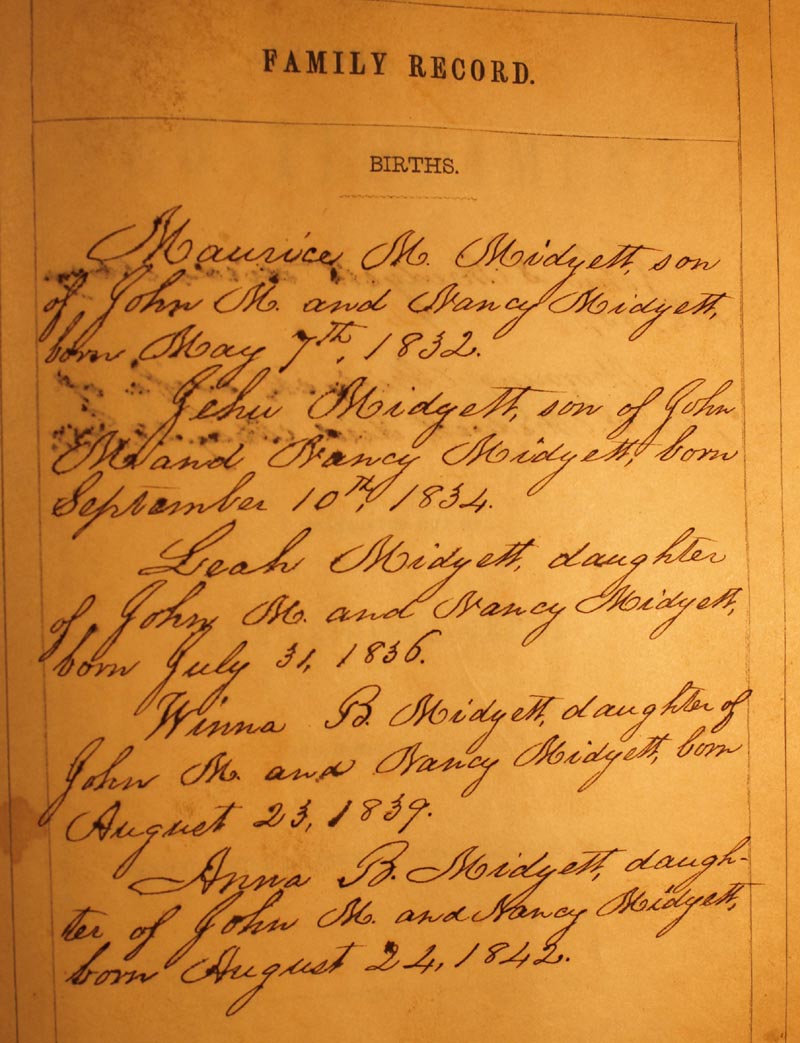 FAMILY RECORD.
BIRTHS.
Maurice M. Midyett, son
of John M. and Nancy Midyett,
born May 7th, 1832.
Jehu Midyett, son of John
M. and Nancy Midyett, born
September 10th, 1834.
Leah Midyett, daughter
of John M. and Nancy Midyett,
born July 31, 1836.
Winna B. Midyett, daughter of
John M. and Nancy Midyett, born
August 23, 1839.
Anna B. Midyett, daugh-
ter of John M. and Nancy Midyett,
born August 24, 1842.